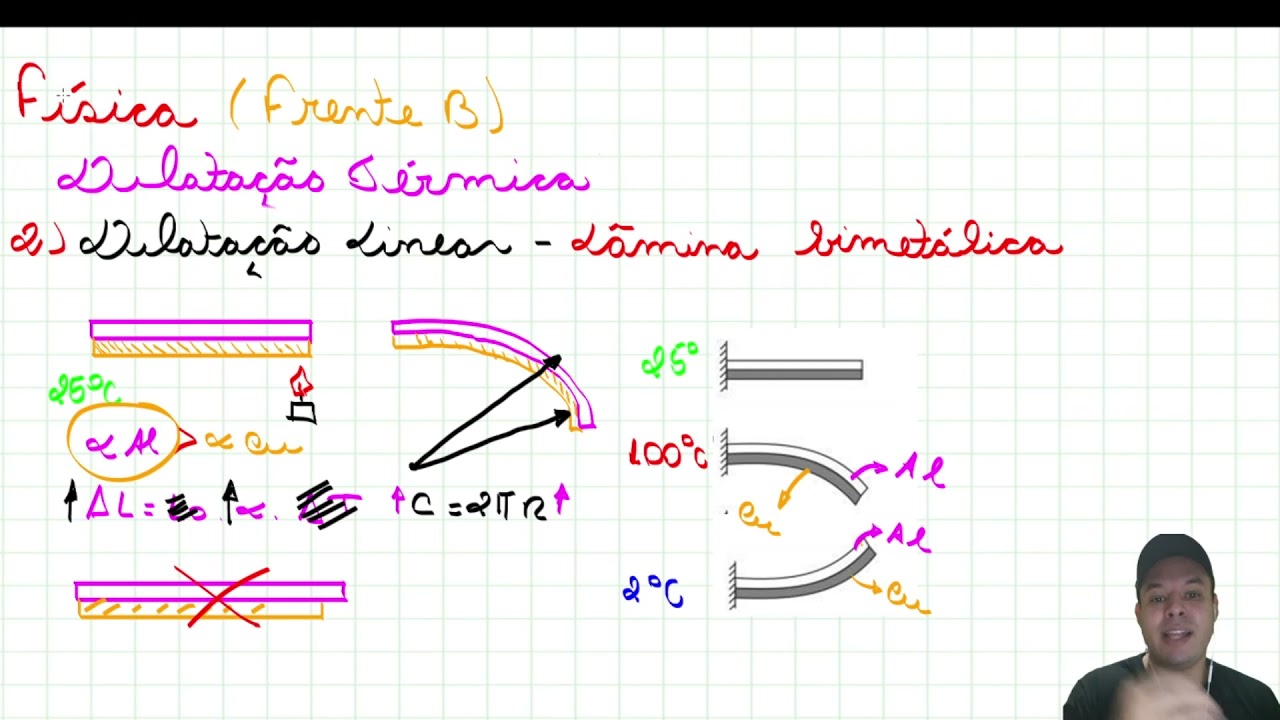 Física (Frente B)
Dilatação Térmica
2) Dilatação Linear - Lâmina bimetálica
25°C
α Al > α Cu
↑ ΔL = Lo . ↑ α .
↑ C = 2πR ↑
25°
100°C
Al
Cu
2°C
Al
Cu